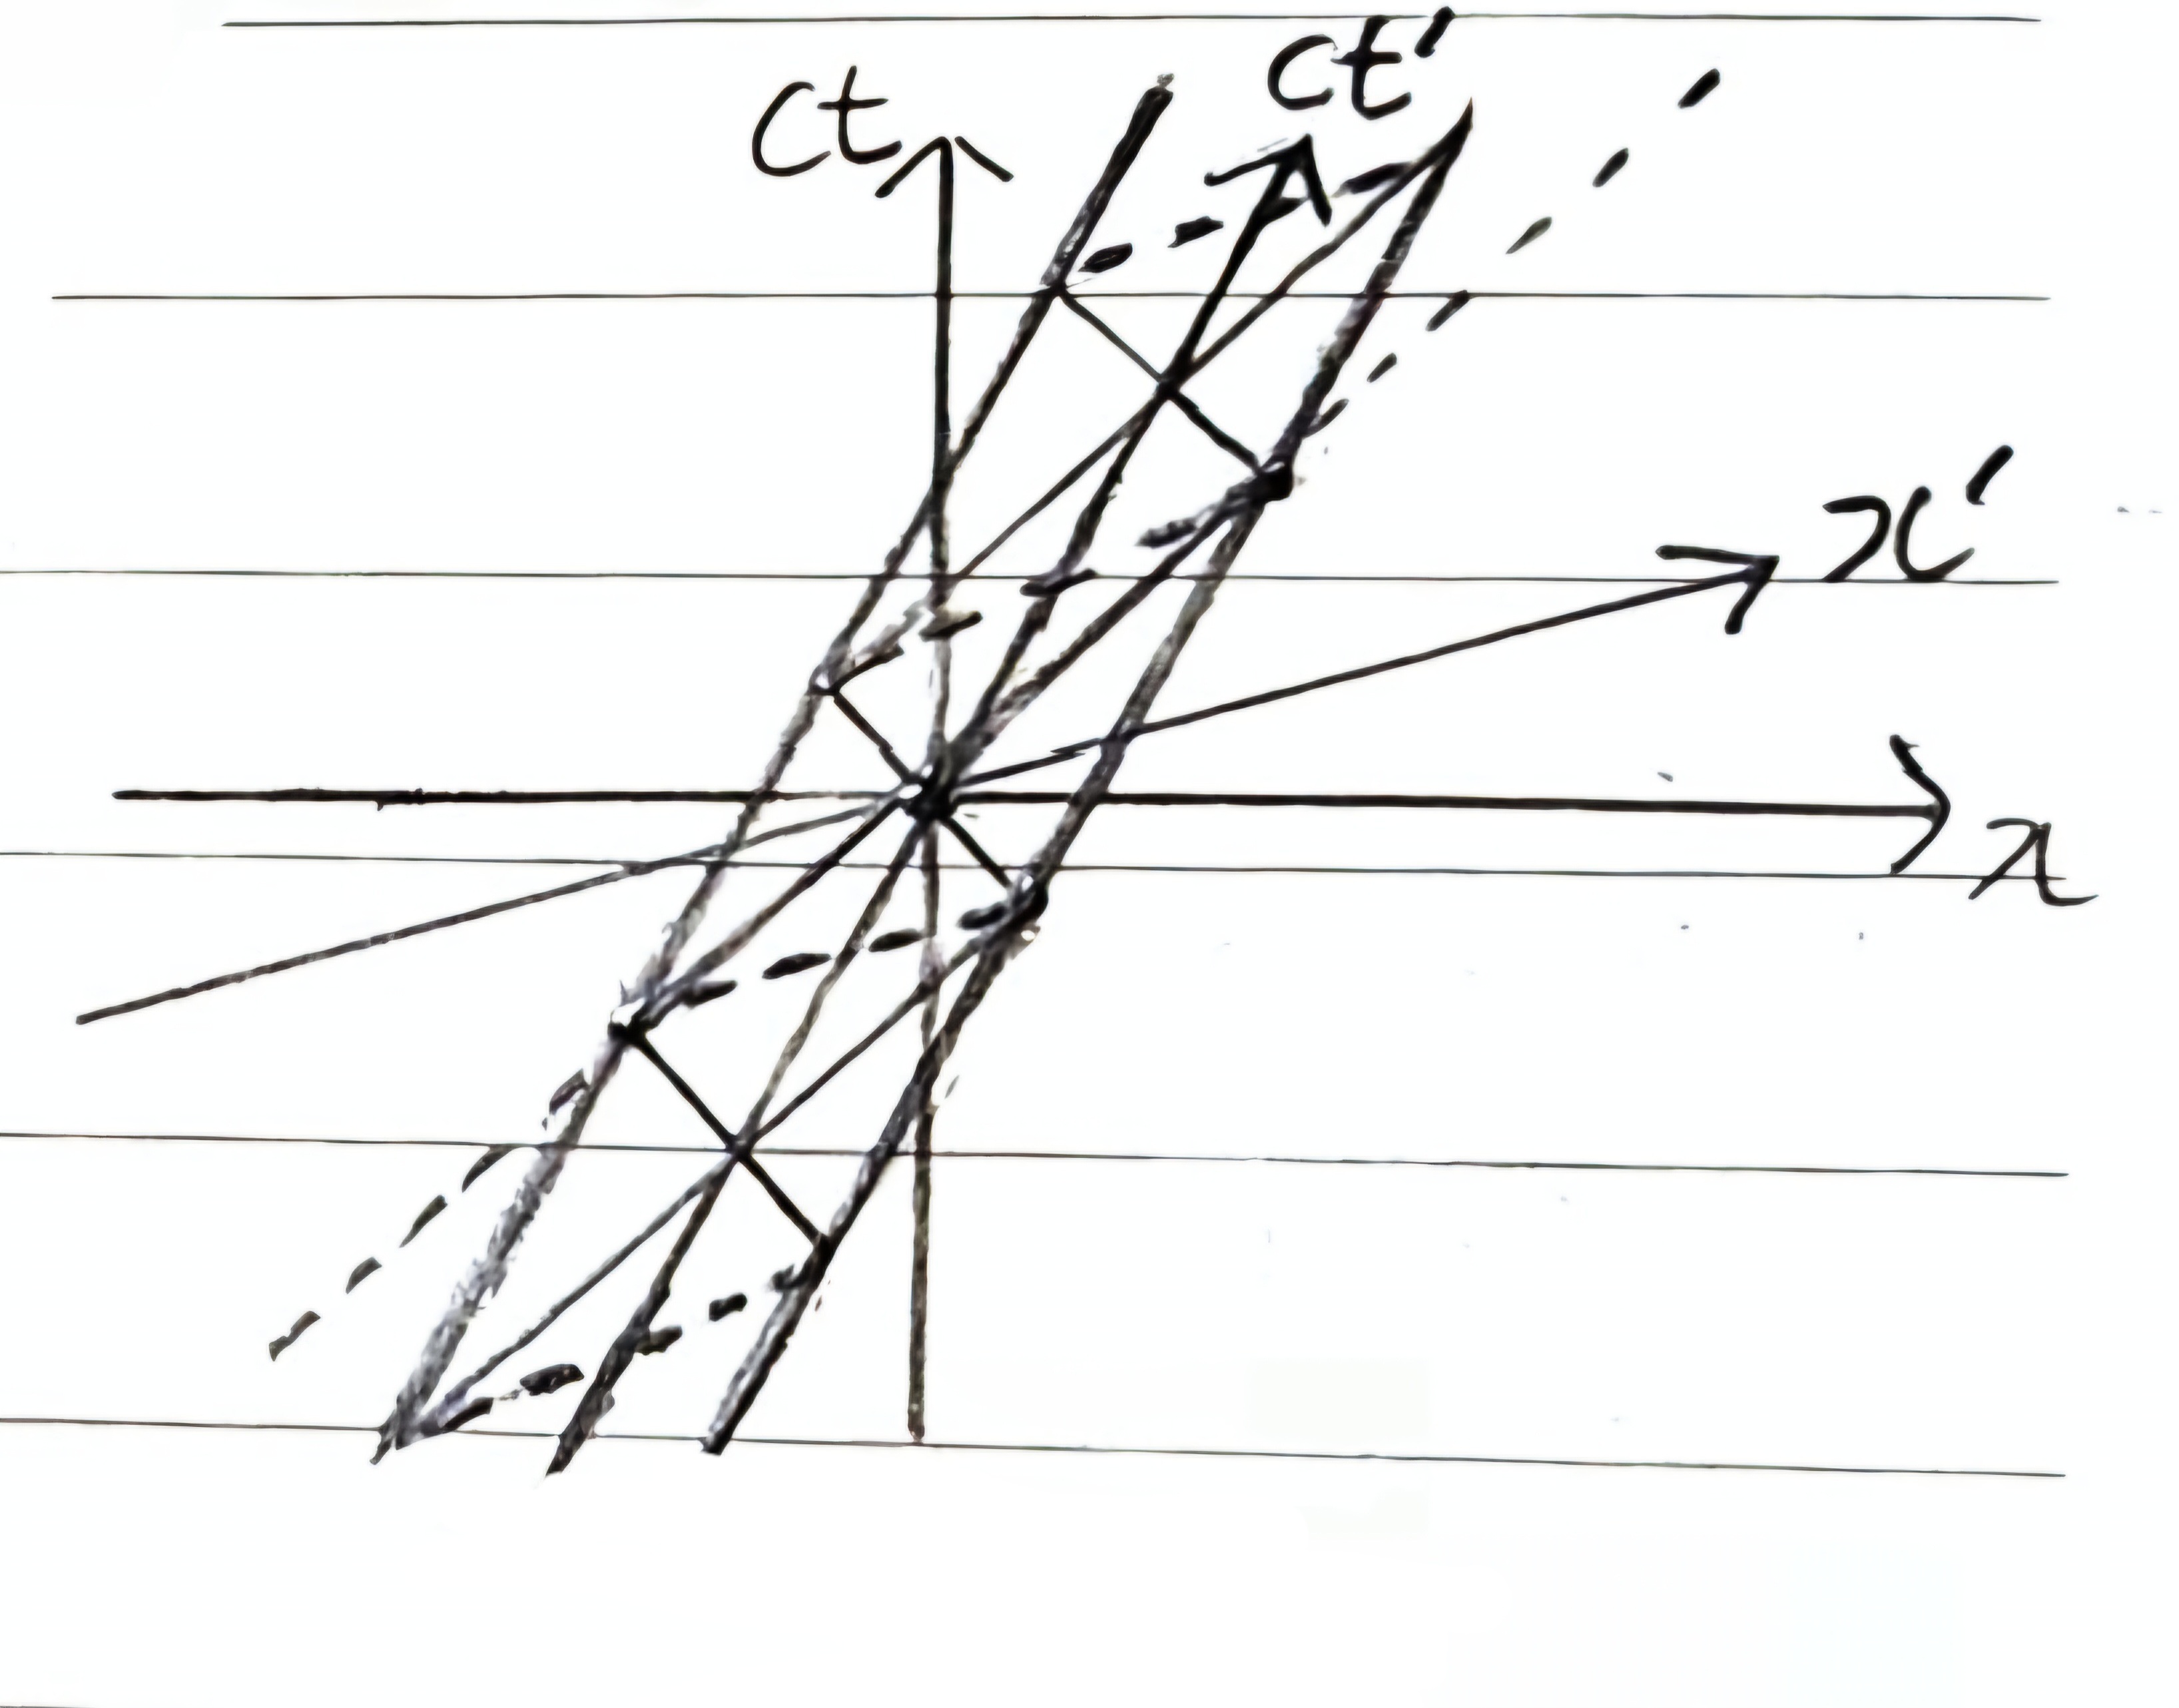 ct
ct'
x'
x